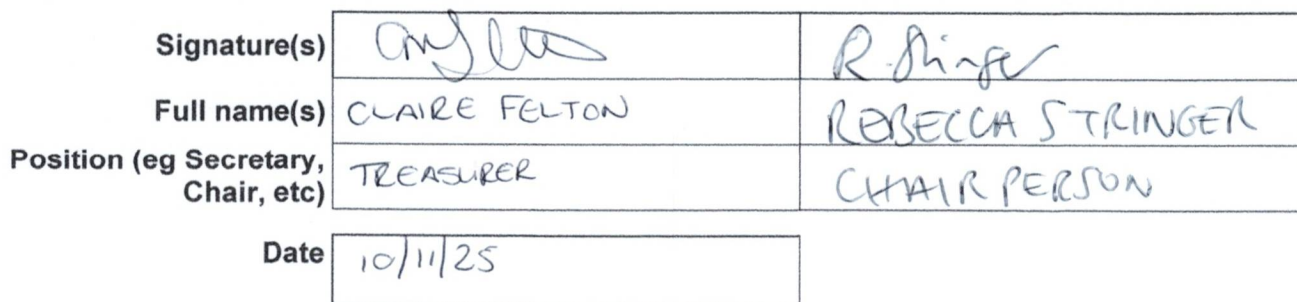 Signature(s) R. Stringer
Full name(s) CLAIRE FELTON REBECCA STRINGER
Position (eg Secretary, Chair, etc) TREASURER CHAIR PERSON
Date 10/11/25